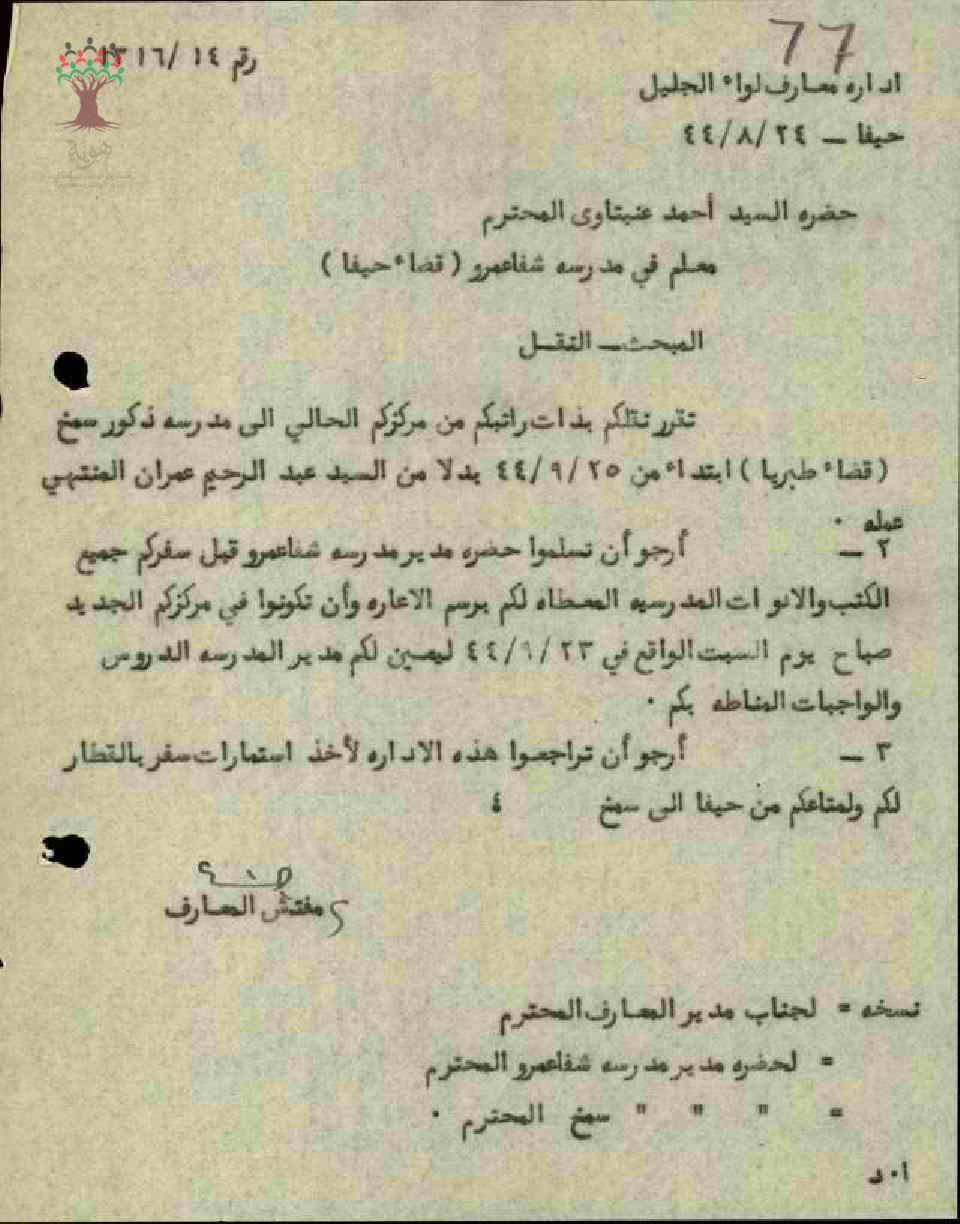 77
رقم ١٤ /١٣١٦
اداره معارف لواء الجليل
حيفا – ٤٤/٨/٢٤
حضره السيد أحمد عنبتاوى المحترم
معلم في مدرسه شفاعمرو ( قضاء حيفا )
المبحث – النقل
تقرر نقلكم بذات راتبكم من مركزكم الحالي الى مدرسه ذكور سمخ
( قضاء طبريا ) ابتداء من ٤٤/٩/٢٥ بدلا من السيد عبد الرحيم عمران المنتهي
عمله ٠
٢ – أرجو أن تسلموا حضره مدير مدرسه شفاعمرو قبل سفركم جميع
الكتب والادوات المدرسيه المعطاه لكم برسم الاعاره وأن تكونوا في مركزكم الجديد
صباح يوم السبت الواقع في ٤٤/٩/٢٣ ليعين لكم مدير المدرسه الدروس
والواجبات المناطه بكم ٠
٣ – أرجو أن تراجعوا هذه الاداره لأخذ استمارات سفر بالقطار
لكم ولمتاعكم من حيفا الى سمخ ٤
مفتش المعارف
نسخه = لجناب مدير المعارف المحترم
= لحضره مدير مدرسه شفاعمرو المحترم
= " " " سمخ المحترم ٠
ا٠د
هوية